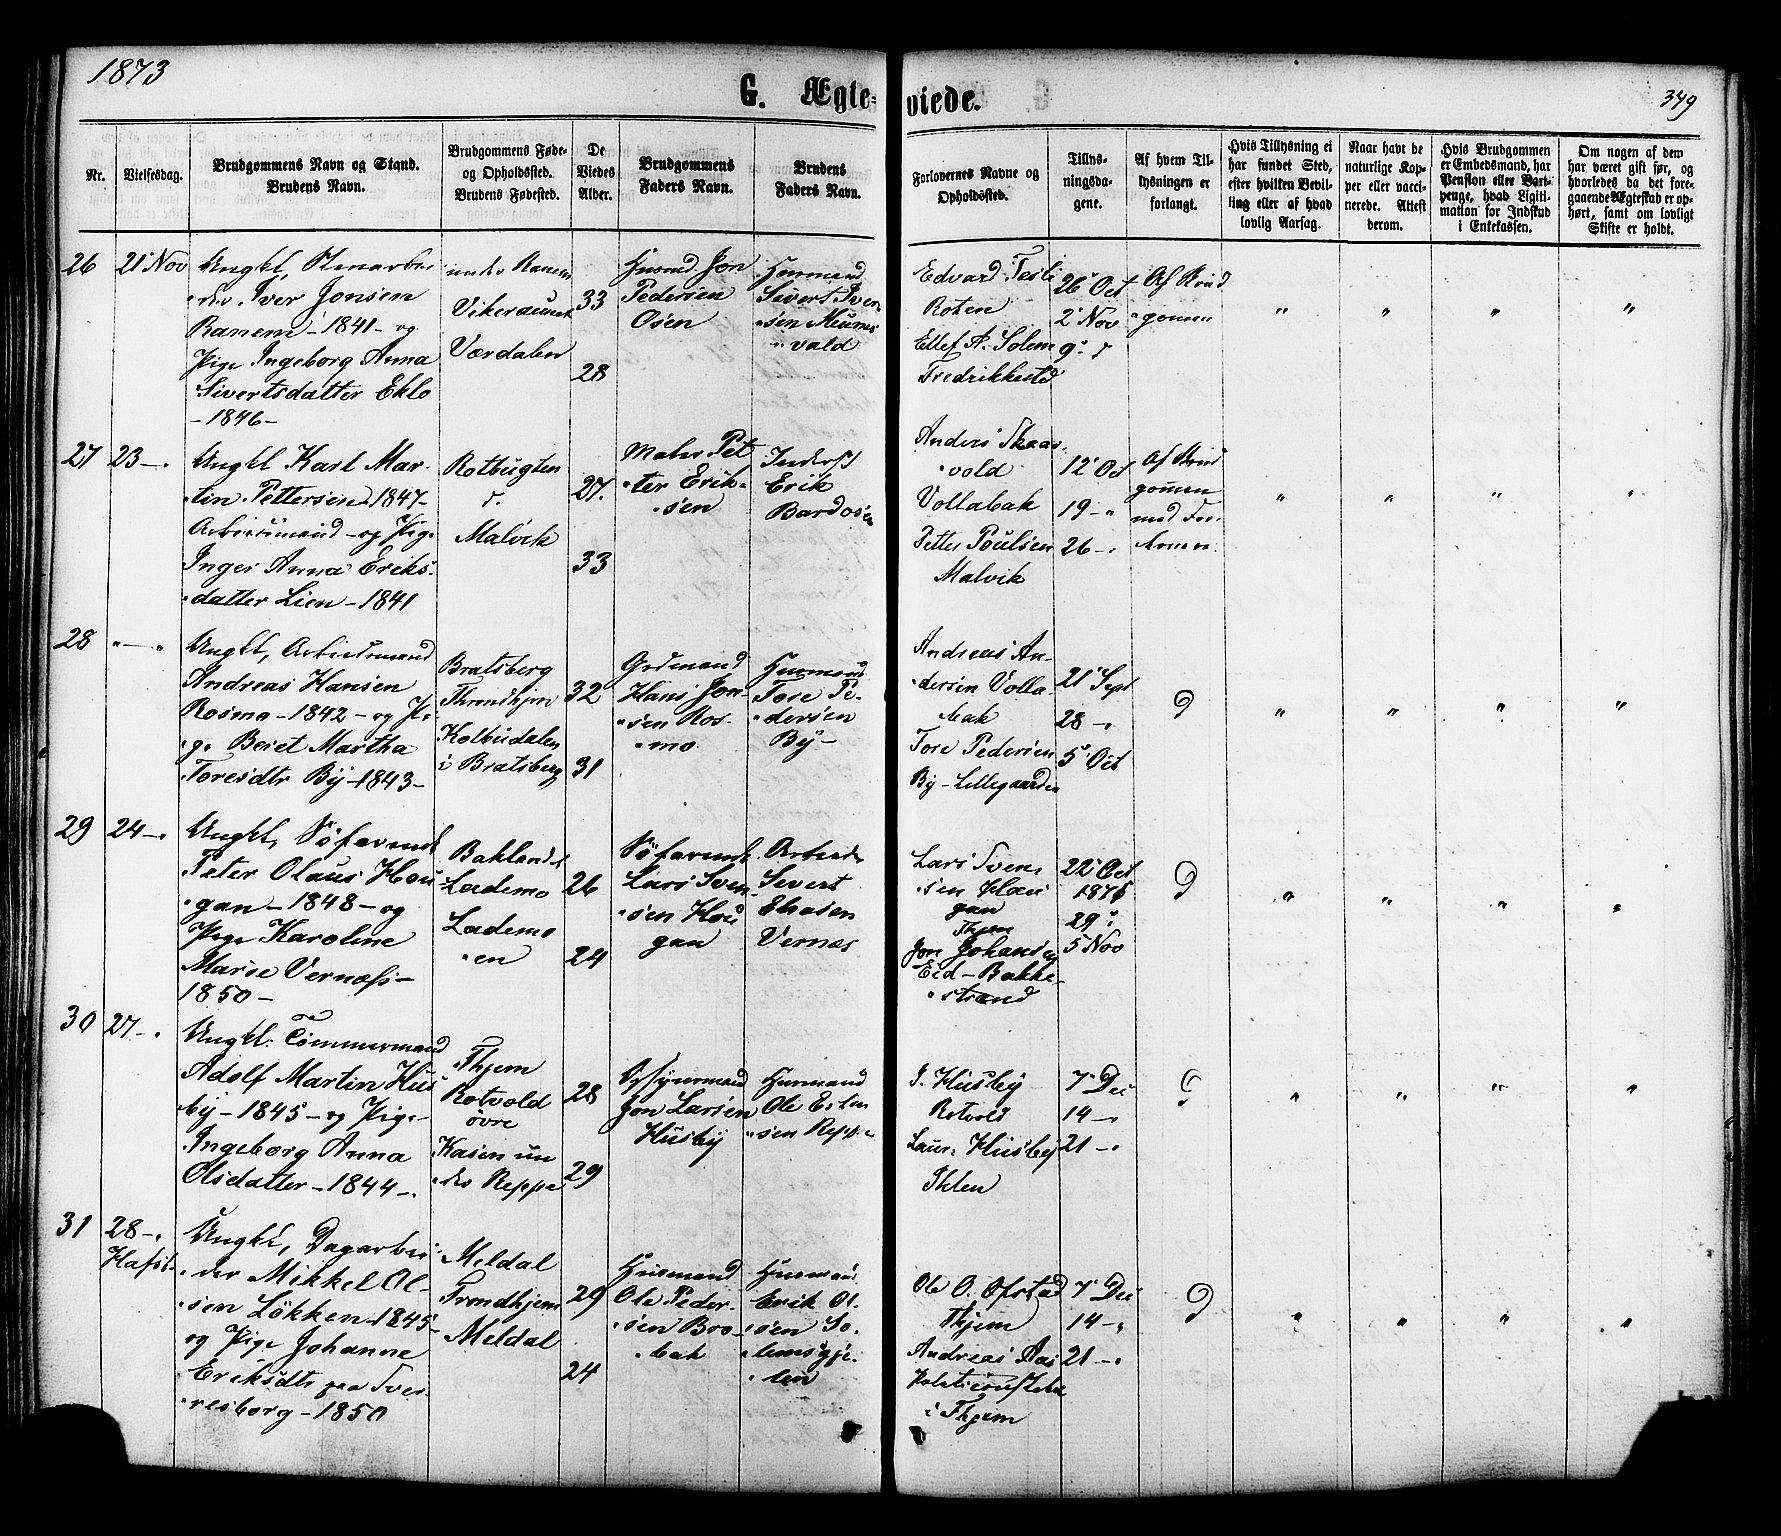 1873
G. Ægte-
viede.
349
Nr.
Vielsesdag.
Brudgommens Navn og Stand.
Brudens Navn.
Brudgommens Føde-
og Opholdssted.
Brudens Fødested.
De
Viedes
Alder.
Brudgommens
Faders Navn.
Brudens
Faders Navn.
Forlovernes Navne og
Opholdssted.
Tillys-
ningsda-
gene.
Af hvem Til-
lysningen er
forlangt.
Hvis Tillysning ei
har fundet Sted,
efter hvilken Bevil-
ling eller af hvad
lovlig Aarsag.
Naar havt de
naturlige Kop-
per eller vacci-
nerede. Attest
derom.
Hvis Brudgommen
er Embedsmand, har
Pension eller Vart-
penge, hvad Ligiti-
mation for Indskud
i Enkekassen.
Om nogen af dem
har været gift før, og
hvorledes da det fore-
gaaende Ægteskab er op-
hørt, samt om lovligt
Skifte er holdt.
26
21 Nov
Ungkl,
der Iver Jonsen
Ranem - 1841 - og
Pige Ingeborg Anna
Sivertsdatter Eklo
- 1846 -
under Ranem
Værdalen
33
28
Husmd Jon
Pedersen
Osen
Husmand
Sivert Iver
sen
vald
Edvard
Roten
Ellef A. Solem
Fredrikkestd
26 Oct
2 Nov
9
Af Brud
gommen
" " " "
27
23 -
Ungkl Karl Mar-
tin Pettersen 1847-
Arbeidsmand - og Pige
Inger Anna Eriks-
datter Lien - 1841
Rotbugten
Malvik
27.
33
Maler Pet
ter Erik-
sen
Inderst
Erik
Bardosen
Anders Skaar
vold
Vollabak
Petter Poulsen
Malvik
12 Oct
19 - "
26 -
Af Brud
gommen
med For
" " " "
28
" — "
Ungkl, Arbeidsmand
Andreas Hansen
Rosmo - 1842 - og Pi-
ge Beret Martha
Toresdtr By - 1843 -
Bratsberg
Throndhjem
Kolbudalen
i Bratsberg
32
31
Grdmand
Hans Jon-
sen Ros-
mo
Husmand
Tore Pe-
dersen
By -
Andreas An-
dersen Volla-
bak
Tore Pedersen
By - Lillegaarden
21 Sept
28 -
5 Oct
" " " "
29
24 -
Ungkl, Söfarende
Peter Olaus Hou
gan - 1848 - og
Pige Karoline
Marie Vernæss -
1850 -
Baklandet
Lademo
Lademo
en
26
24
Söfarende
Lars Sven
sen Hou
gan
Arbeider
Sivert
Eliasen
Vernæs
Lars Sven-
sen Hau
gan
Thjem
Jon Johansen
Eid - Bakke-
strand
22 Oct
29
5 Nov
" " " "
30
27 -
Ungkl. Tömmermand
Adolf Martin Hus
by - 1845 - og Pige
Ingeborg Anna
Olsdatter - 1844 -
Thjem
Rotvold
övre
Kasen un
der Reppe
28
29
Opsynsmand
Jon Larsen
Husby
Husmand
Ole Esten
sen Reppe
J. Husby
Rotvold
Laur. Husby
Ihlen
7 Dec
14 -
21 -
" " " "
31
28 -
Ungkl, Dagarbei
der Mikkel Ol-
sen Lökken 1845-
og Pige Johanne
Eriksdtr paa Sver-
resborg - 1850
Meldal
Trondhjem
Meldal
29
24
Husmand
Ole Peder-
sen Bro-
bak
Husmand
Erik Ol-
sen So-
lemsgje-
len
Ole O. Ofstad
Thjem
Andreas Aas
i Thjem
7 Dec
14 -
21 -
" " " "